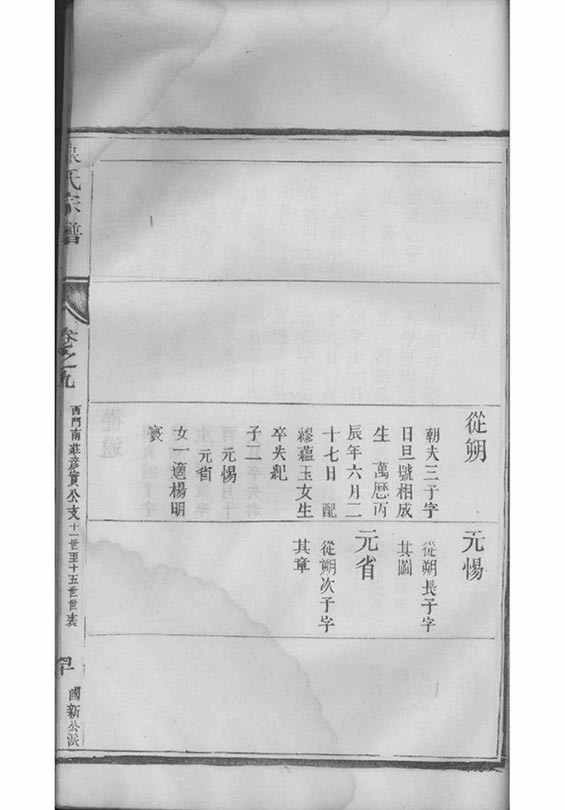 從朔
朝夫三子字
日旦號相成
生　萬歷丙
辰年六月二
十七日　配
繆蘊玉女生
卒失紀
子二
元惕
元省
女一適楊明
寰
元惕
從朔長子字
其圖
元省
從朔次子字
其章
氏宗譜
卷之九
西門南莊彥實公支十一世至十五世世表
國新公派